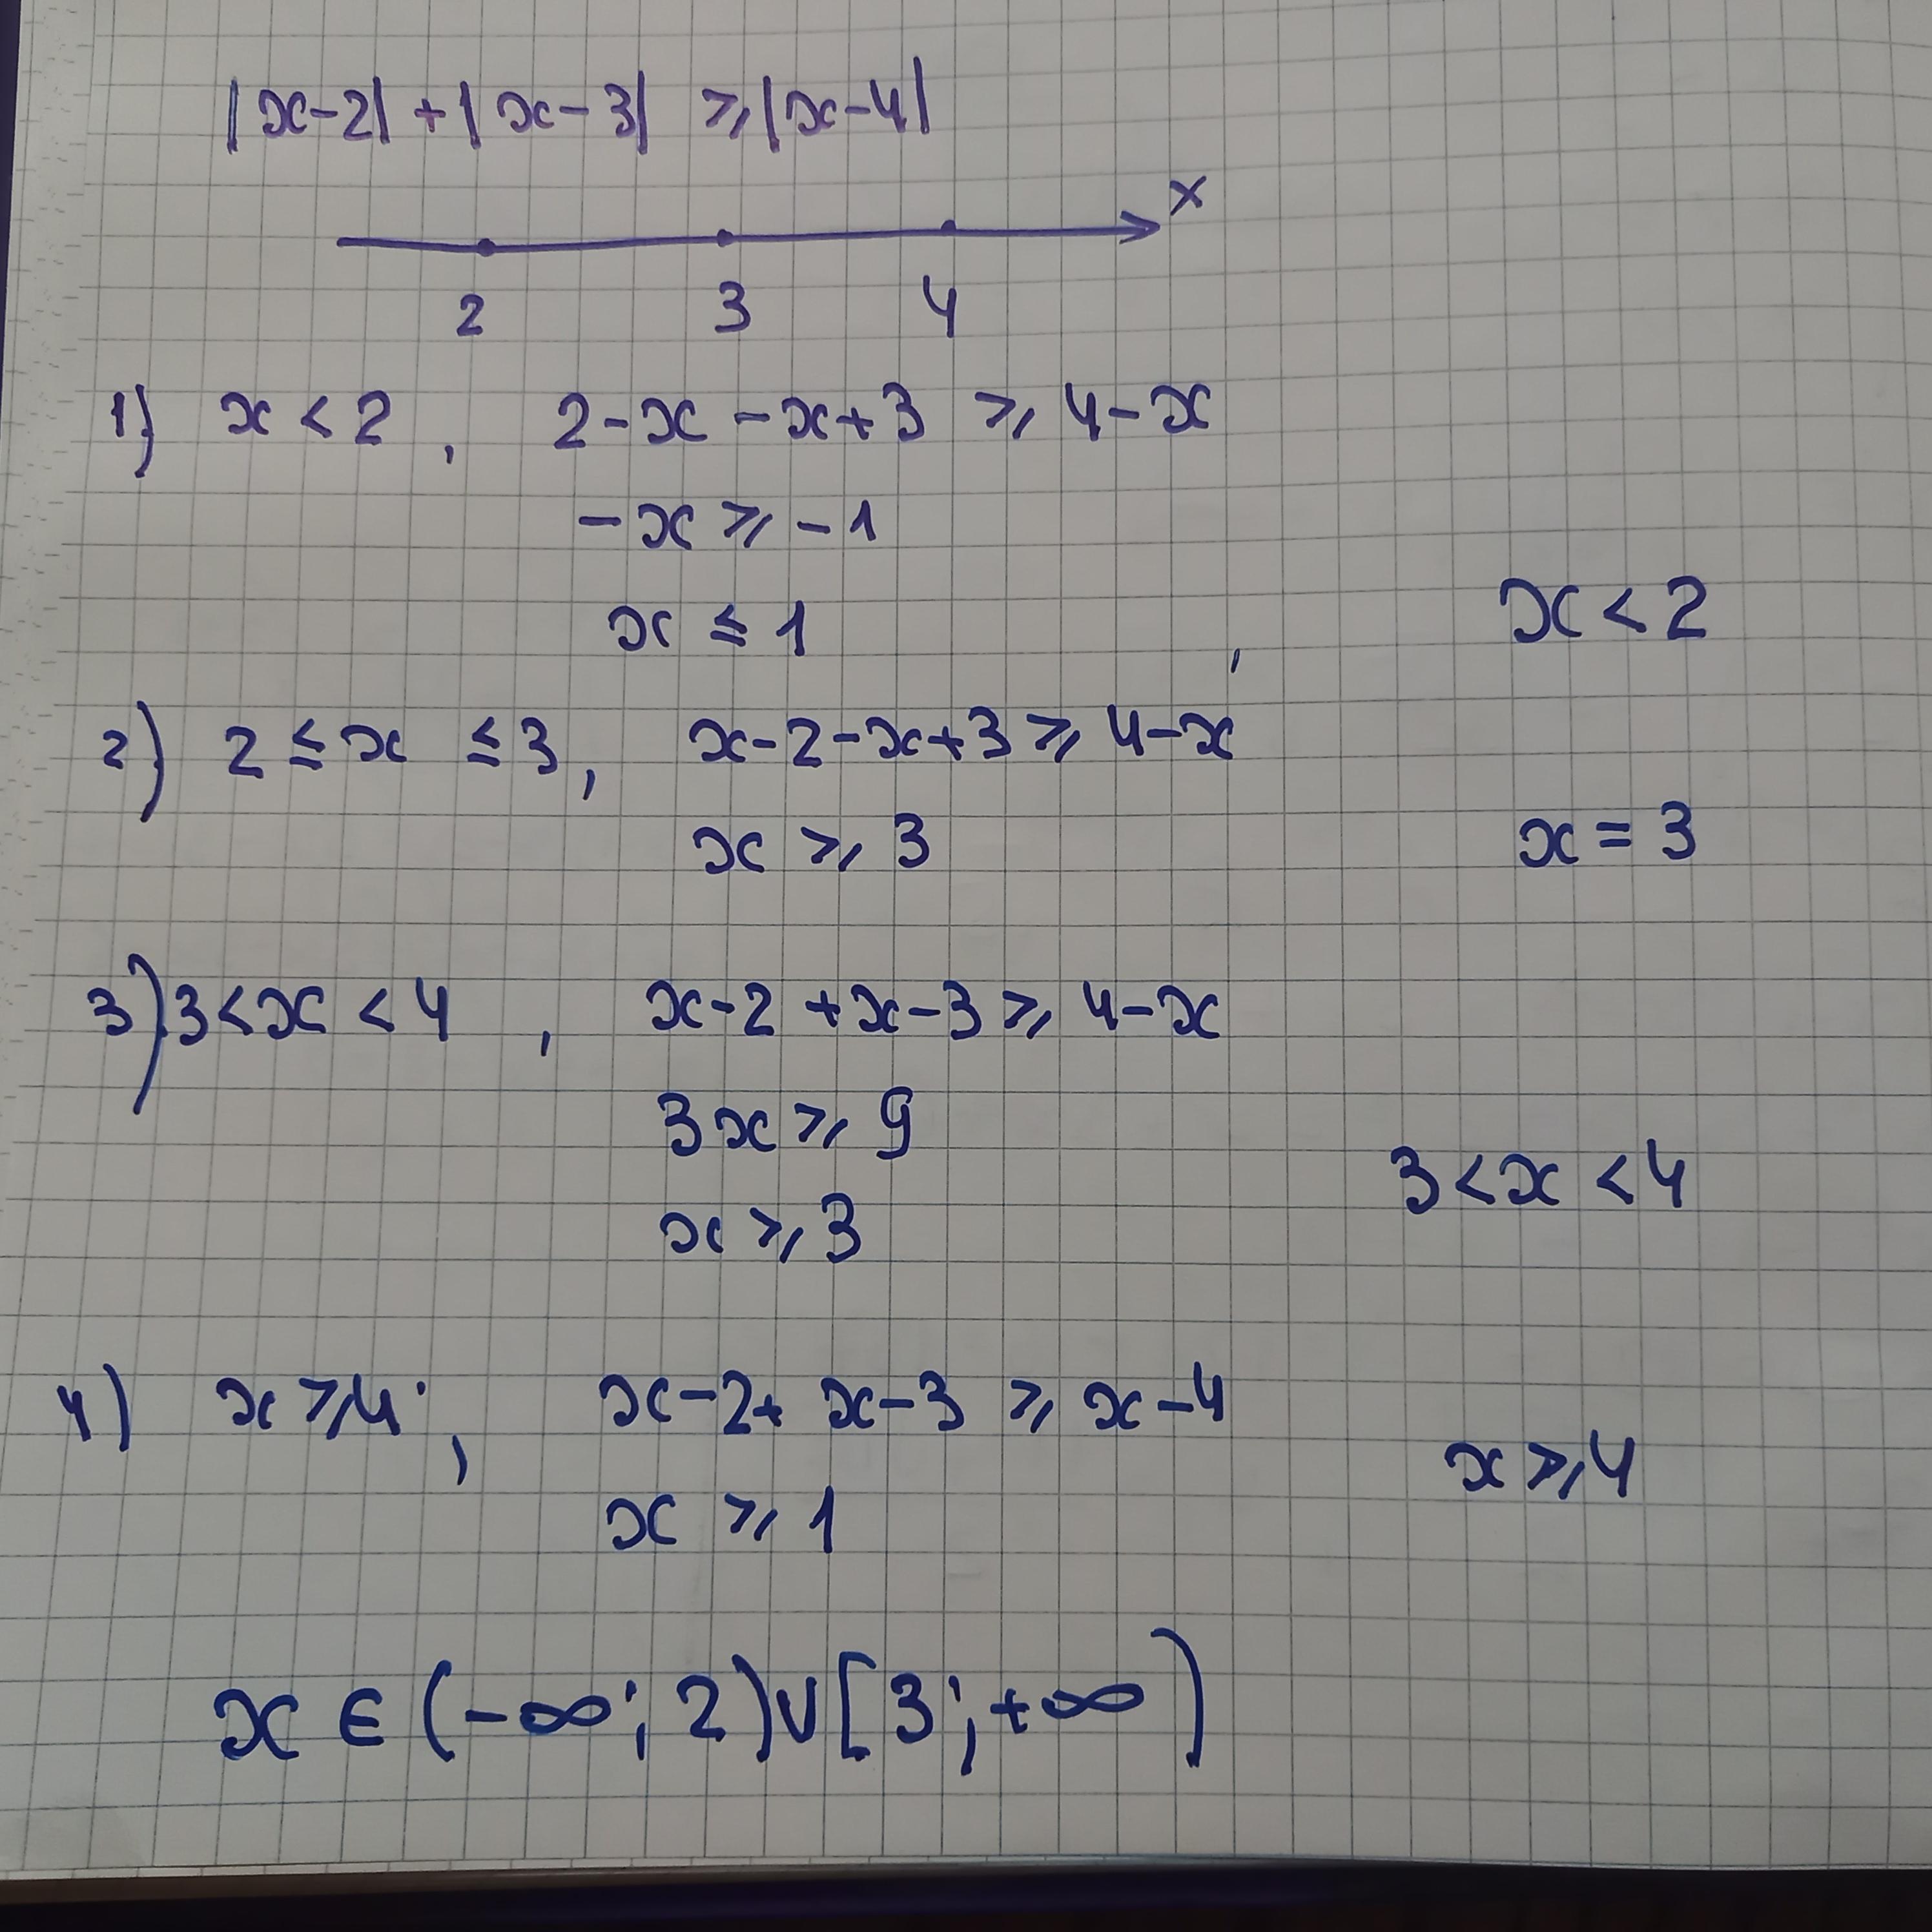 |x-2| + |x-3| ⩾ |x-4|
x
2 3 4
1) x < 2 , 2-x-x+3 ⩾ 4-x
-x ⩾ -1
x ≤ 1 , x < 2
2) 2 ≤ x ≤ 3 , x-2-x+3 ⩾ 4-x
x ⩾ 3 x = 3
3) 3 < x < 4 , x-2+x-3 ⩾ 4-x
3x ⩾ 9
3 < x < 4
x ⩾ 3
4) x ⩾ 4 , x-2+x-3 ⩾ x-4
x ⩾ 4
x ⩾ 1
x ∈ (-∞; 2) ∪ [3; +∞)